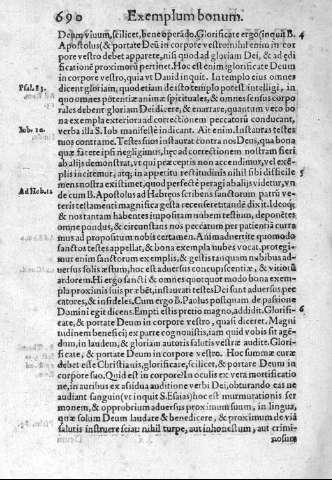 690 Exemplum bonum.
Deum viuum, scilicet, bene operado. Glorificate ergo (inquit B. 4
Apostolus (& portate Deū in corpore vestro: nihil enim in cor
pore vestro debet apparere, nisi quod ad gloriam Dei, & ad ędi
ficationē proximorū pertinet. Hoc est enim glorificate Deum
in corpore vestro, quia vt Dauid inquit. In templo eius omnes
Psal. 83. dicent gloriam, quod etiam de isto templo potest intelligi, in
quo omnes potentiæ animæ spirituales, & omnes sensus corpo
rales debent gloriam Dei dicere, & enarrare, quantum verò bo
na exempla exteriora ad correctionem peccatorū conducant,
Iob. 10. verba illa S. Iob manifestè indicant. Ait enim. Instauras testes
tuos contra me. Testes suos instaurat contra nos Deus, qua bona
quæ facere ipsi negligimus, hęc ad correctionem nostram fieri
ab alijs demonstrat, vt qui præceptis non accendimur, vel exē-
plis incitemur, atq; in appetitu rectitudinis nihil sibi difficile 5
mens nostra existimet, quod perfectè peragi ab alijs videtur, vn
Ad Heb. 12 de cum B. Apostolus ad Hebręos scribens sanctorum patrū ve-
teris testamenti magnifica gesta recenseret inde dixit. Ideoq;
& nos tantam habentes impositam nubem testium, deponētes
omne pondus, & circunstans nos peccatum per patientiā curra
mus ad propositum nobis certamen. Animaduertite quomodo
sanctos testes appellat, & bona exempla nubes vocat. protegi-
mur enim sanctorum exemplis, & gestis tanquam nubibus ad-
uersus solis æstum, hoc est aduersus concupiscentiæ, & vitiorū
ardorem. Hi ergo sancti & omnes quoquot modo bona exem-
pla proximis suis præbēt, instaurati testes Dei sunt aduersus pec
catores, & infideles. Cum ergo B. Paulus posquam de passione
Domini egit dicens. Empti estis pretio magno, addidit. Glorifi- 6
cate, & portate Deum in corpore vestro, quasi diceret. Magni
tudinem beneficij ex parte cognouistis, iam quid vobis sit agē-
dum, in laudem, & gloriam autoris salutis vestræ audite. Glorifi-
cate, & portate Deum in corpore vestro. Hoc summæ curæ
debet esse Christianis, glorificate, scilicet, & portare Deum in
corpore suo. Quid est in corpore? In oculis ex vera mortificatio
ne, in auribus ex assidua auditione verbi Dei, obturando eas ne
audiant sanguin (vt inquit S. Esaias) hoc est murmurationis ser
monem, & opprobrium aduersus proximum suum, in lingua,
quæ solum Deum laudate & benedicere, & proximum de via
salutis instruere sciat: nihil turpe, aut inhonestum, aut crimi
nosum